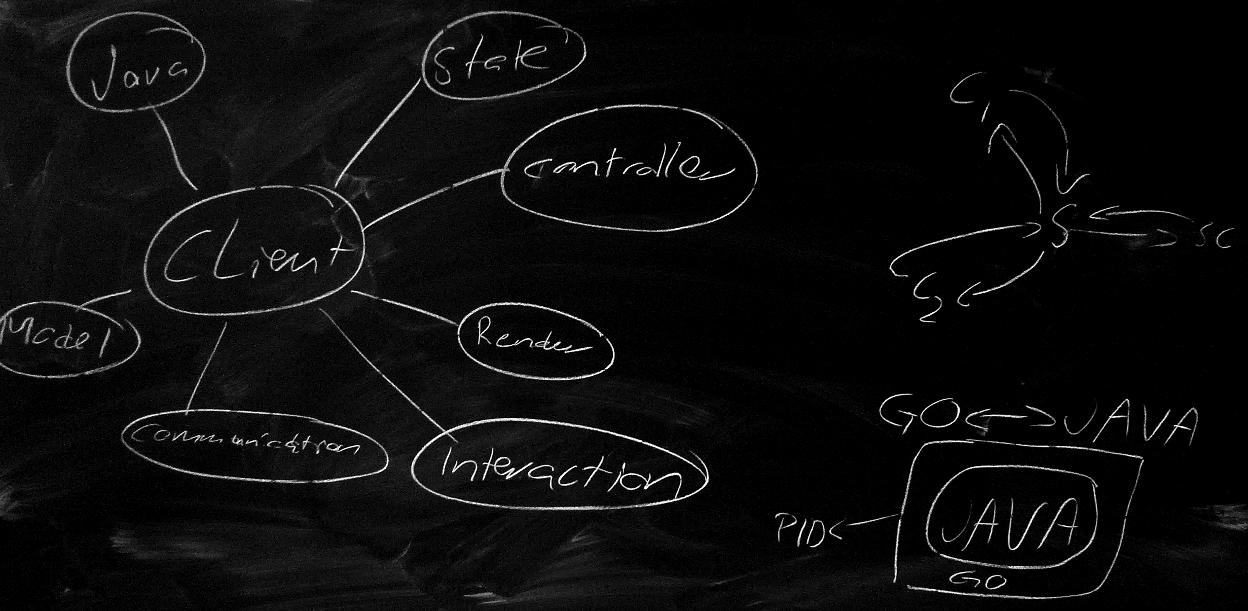 Java
State
Controller
Client
Model
Render
Communication
Interaction
C1
S
SC
C2
GO <-> JAVA
JAVA
PID
GO